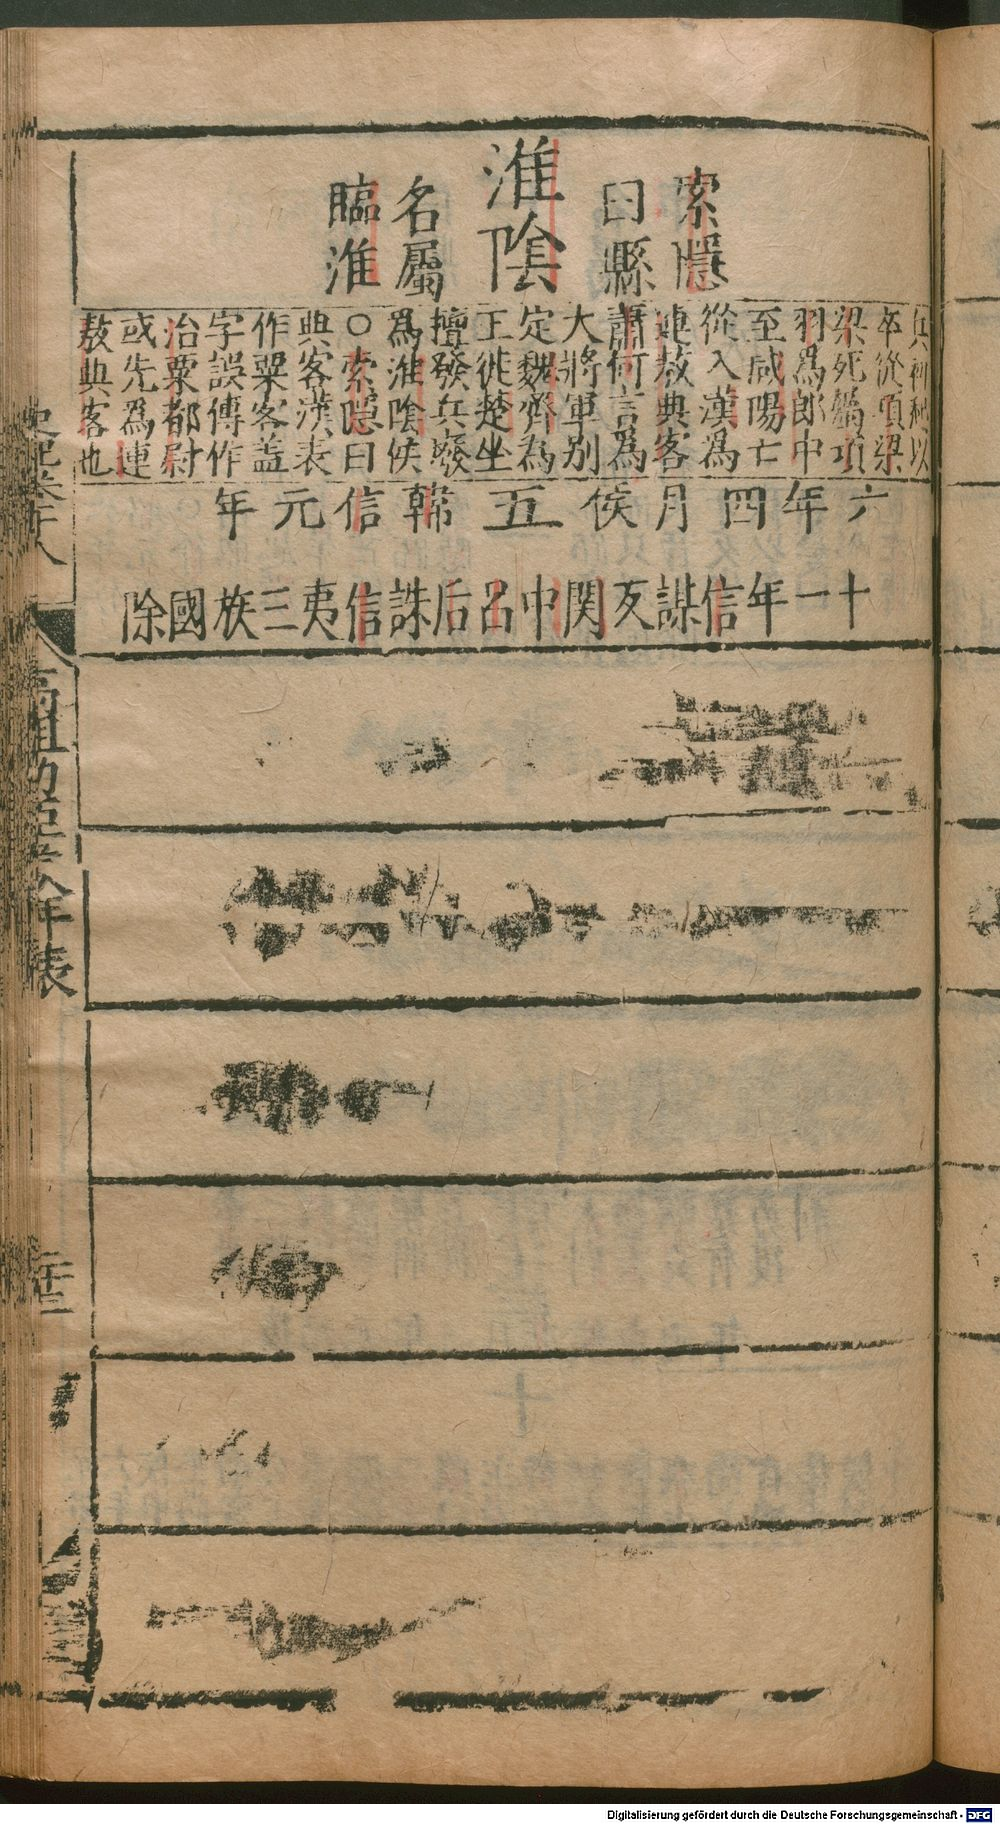 索隱
曰縣
淮陰
名屬
臨淮
兵初以
卒從項梁
梁死屬項
羽爲郎中
至咸陽亡
從入漢爲
連敖典客
蕭何言爲
大將軍別
定魏齊為
王徙楚坐
擅發兵廢
爲淮陰侯
○索隱曰
典客漢表
作粟客蓋
字誤傳作
治粟都尉
或先爲連
敖典客也
六年四月侯五韓信元年
十一年信謀反関中呂后誅信夷三族國除
史記卷十八
高祖功臣侯年表
Digitalisierung gefördert durch die Deutsche Forschungsgemeinschaft - DFG